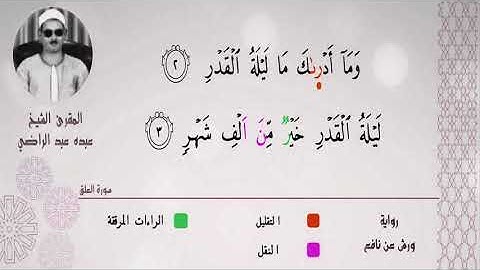 وَمَآ أَدْر۪ىٰكَ مَا لَيْلَةُ اُ۬لْقَدْرِ ٢
لَيْلَةُ اُ۬لْقَدْرِ خَيْرٌ مِّنَ اَلْفِ شَهْرٖ ٣
المقرئ الشيخ
عبده عبد الراضي
سورة العلق
رواية
ورش عن نافع
التقليل
النقل
الراءات المرققة